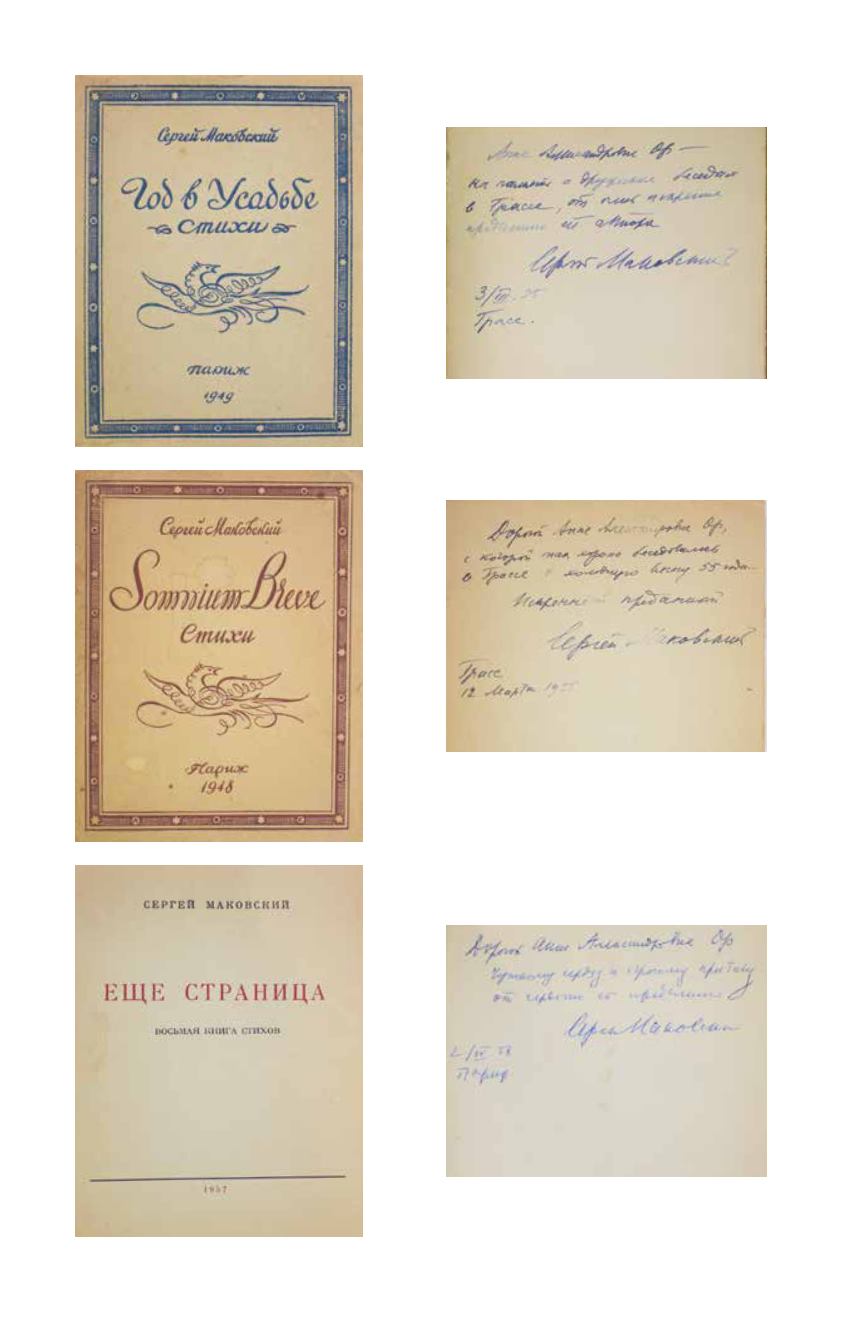 Сергей Маковский
Год в Усадьбе
стихи
париж
1949
Анне Александровне Ор —
на память о дружеских беседах
в Грассе, от
автора
Сергей Маковский
3/III.55
Грасс.
Сергей Маковский
Somnium Breve
Стихи
Париж
1948
Дорогой Анне Александровне Ор,
с которой так хорошо беседовалось
в Грассе в холодную весну 55 года...
Искренно преданный
Сергей Маковский
Грасс
12 Марта 1955
СЕРГЕЙ МАКОВСКИЙ
ЕЩЕ СТРАНИЦА
ВОСЬМАЯ КНИГА СТИХОВ
1957
Дорогой Анне Александровне Ор
Чуткому сердцу и
от
Сергей Маковский
Париж